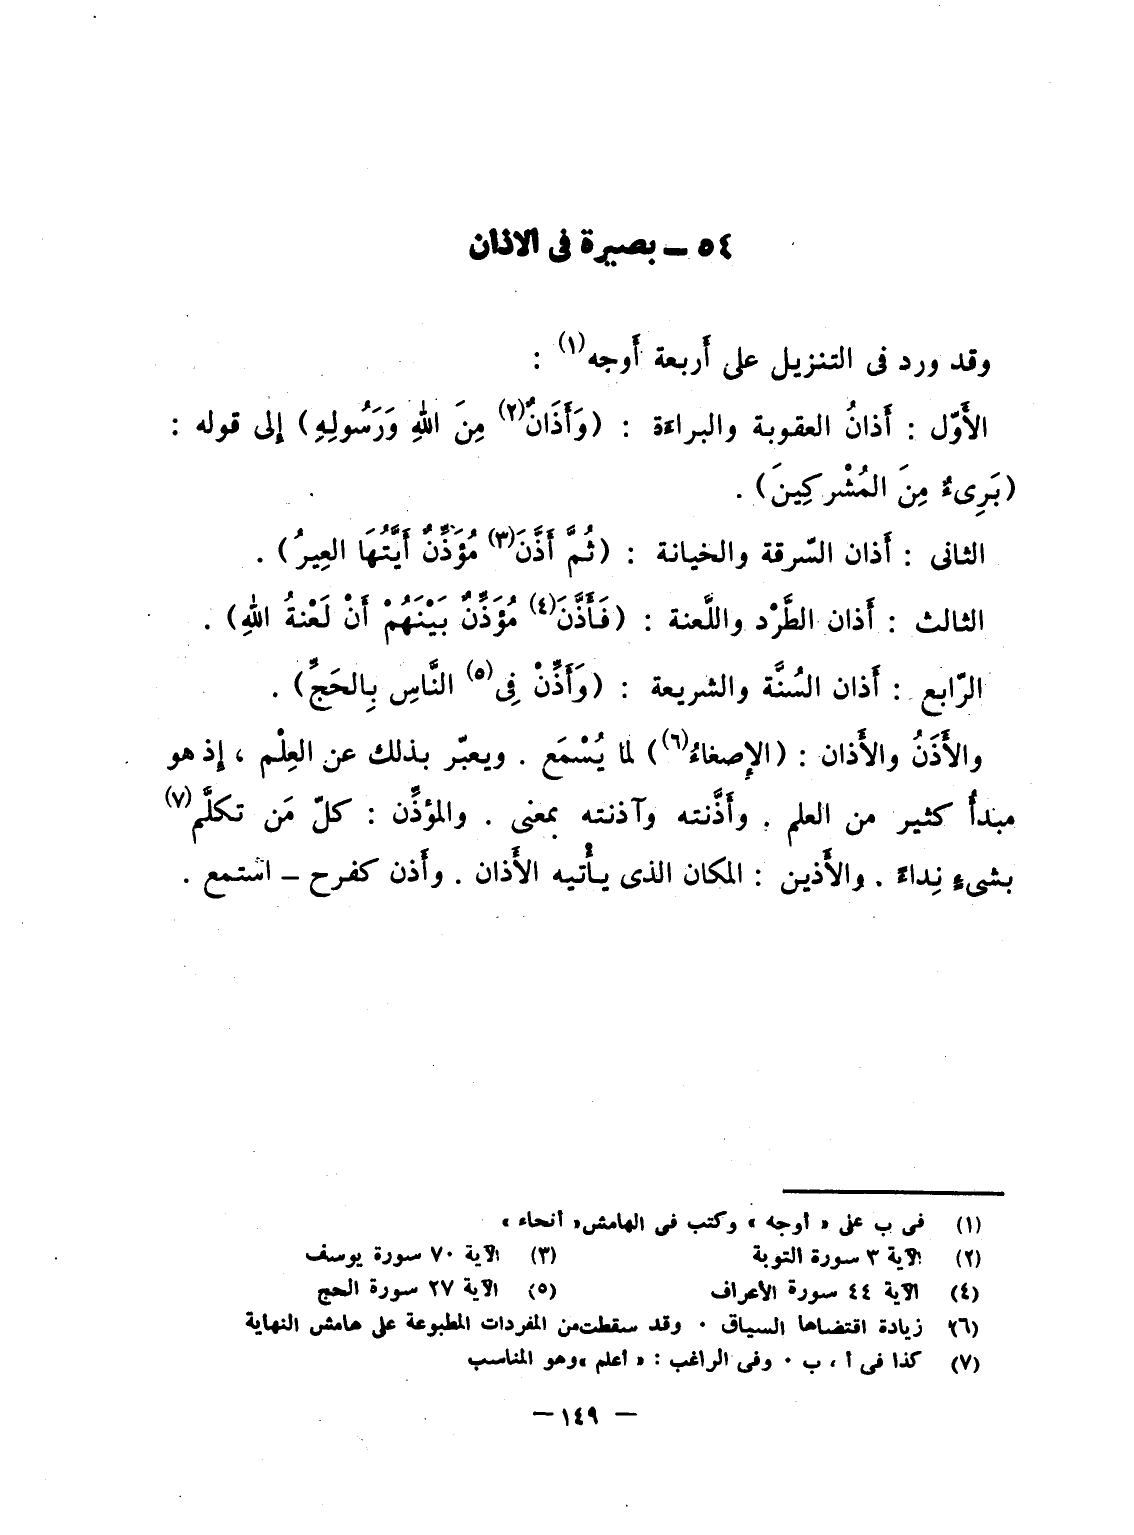 ٥٤ – بصيرة فى الاذان
وقد ورد فى التنزيل على أَربعة أَوجه(١) :
الأَوّل : أَذانُ العقوبة والبراءَة : (وَأَذَانٌ(٢) مِنَ اللهِ وَرَسُولِهِ) إلى قوله :
(بَرِىءٌ مِنَ المُشْركِينَ) .
الثانى : أَذان السّرقة والخيانة : (ثُمَّ أَذَّنَ(٣) مُؤَذِّنٌ أَيَّتُهَا العِيرُ) .
الثالث : أَذان الطَّرْد واللَّعنة : (فَأَذَّنَ(٤) مُؤَذِّنٌ بَيْنَهُمْ أَنْ لَعْنةُ اللهِ) .
الرّابع : أَذان السُنَّة والشريعة : (وَأَذِّنْ فِى(٥) النَّاسِ بِالحَجِّ) .
والأَذَنُ والأَذان : (الإصغاءُ(٦)) لما يُسْمَع . ويعبّر بذلك عن العِلْم ، إذ هو
مبدأُ كثير من العلم . وأَذَّنته وآذنته بمعنى . والمؤذِّن : كلّ مَن تكلَّم(٧)
بشىءٍ نِداءً . والأَذين : المكان الذى يأْتيه الأَذان . وأَذن كفرح – استمع .
(١) فى ب على « أوجه » وكتب فى الهامش « أنحاء »
(٢) الآية ٣ سورة التوبة (٣) الآية ٧٠ سورة يوسف
(٤) الآية ٤٤ سورة الأعراف (٥) الآية ٢٧ سورة الحج
(٢٦ زيادة اقتضاها السياق ٠ وقد سقطت من المفردات المطبوعة على هامش النهاية
(٧) كذا فى أ ، ب ٠ وفى الراغب : « أعلم » وهو المناسب
– ١٤٩ –